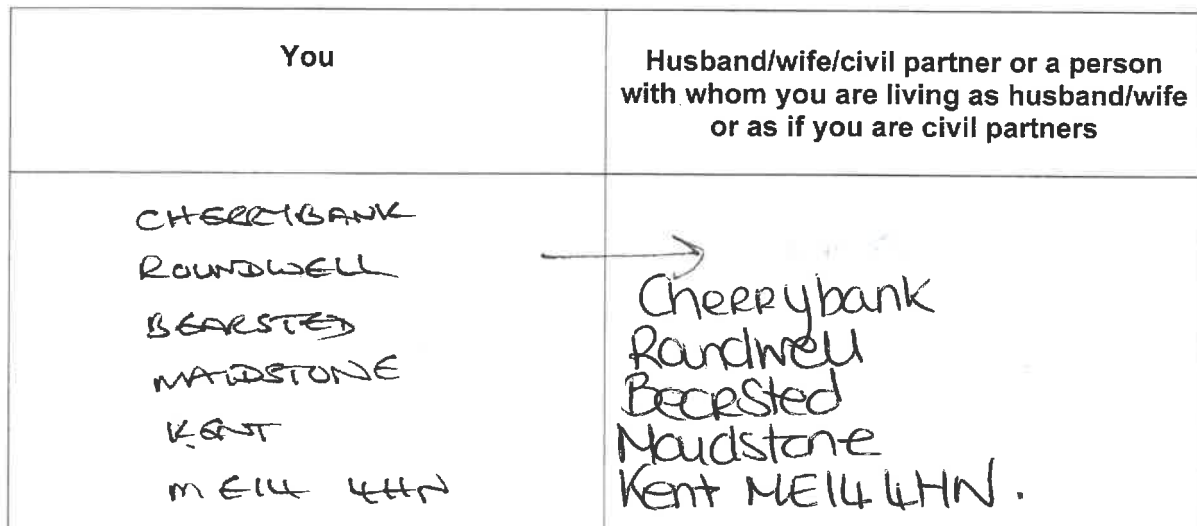 You
Husband/wife/civil partner or a person
with whom you are living as husband/wife
or as if you are civil partners
CHERRYBANK
ROUNDWELL
BEARSTED
MAIDSTONE
KENT
ME14 4HN
Cherrybank
Roundwell
Bearsted
Maidstone
Kent ME14 4HN.